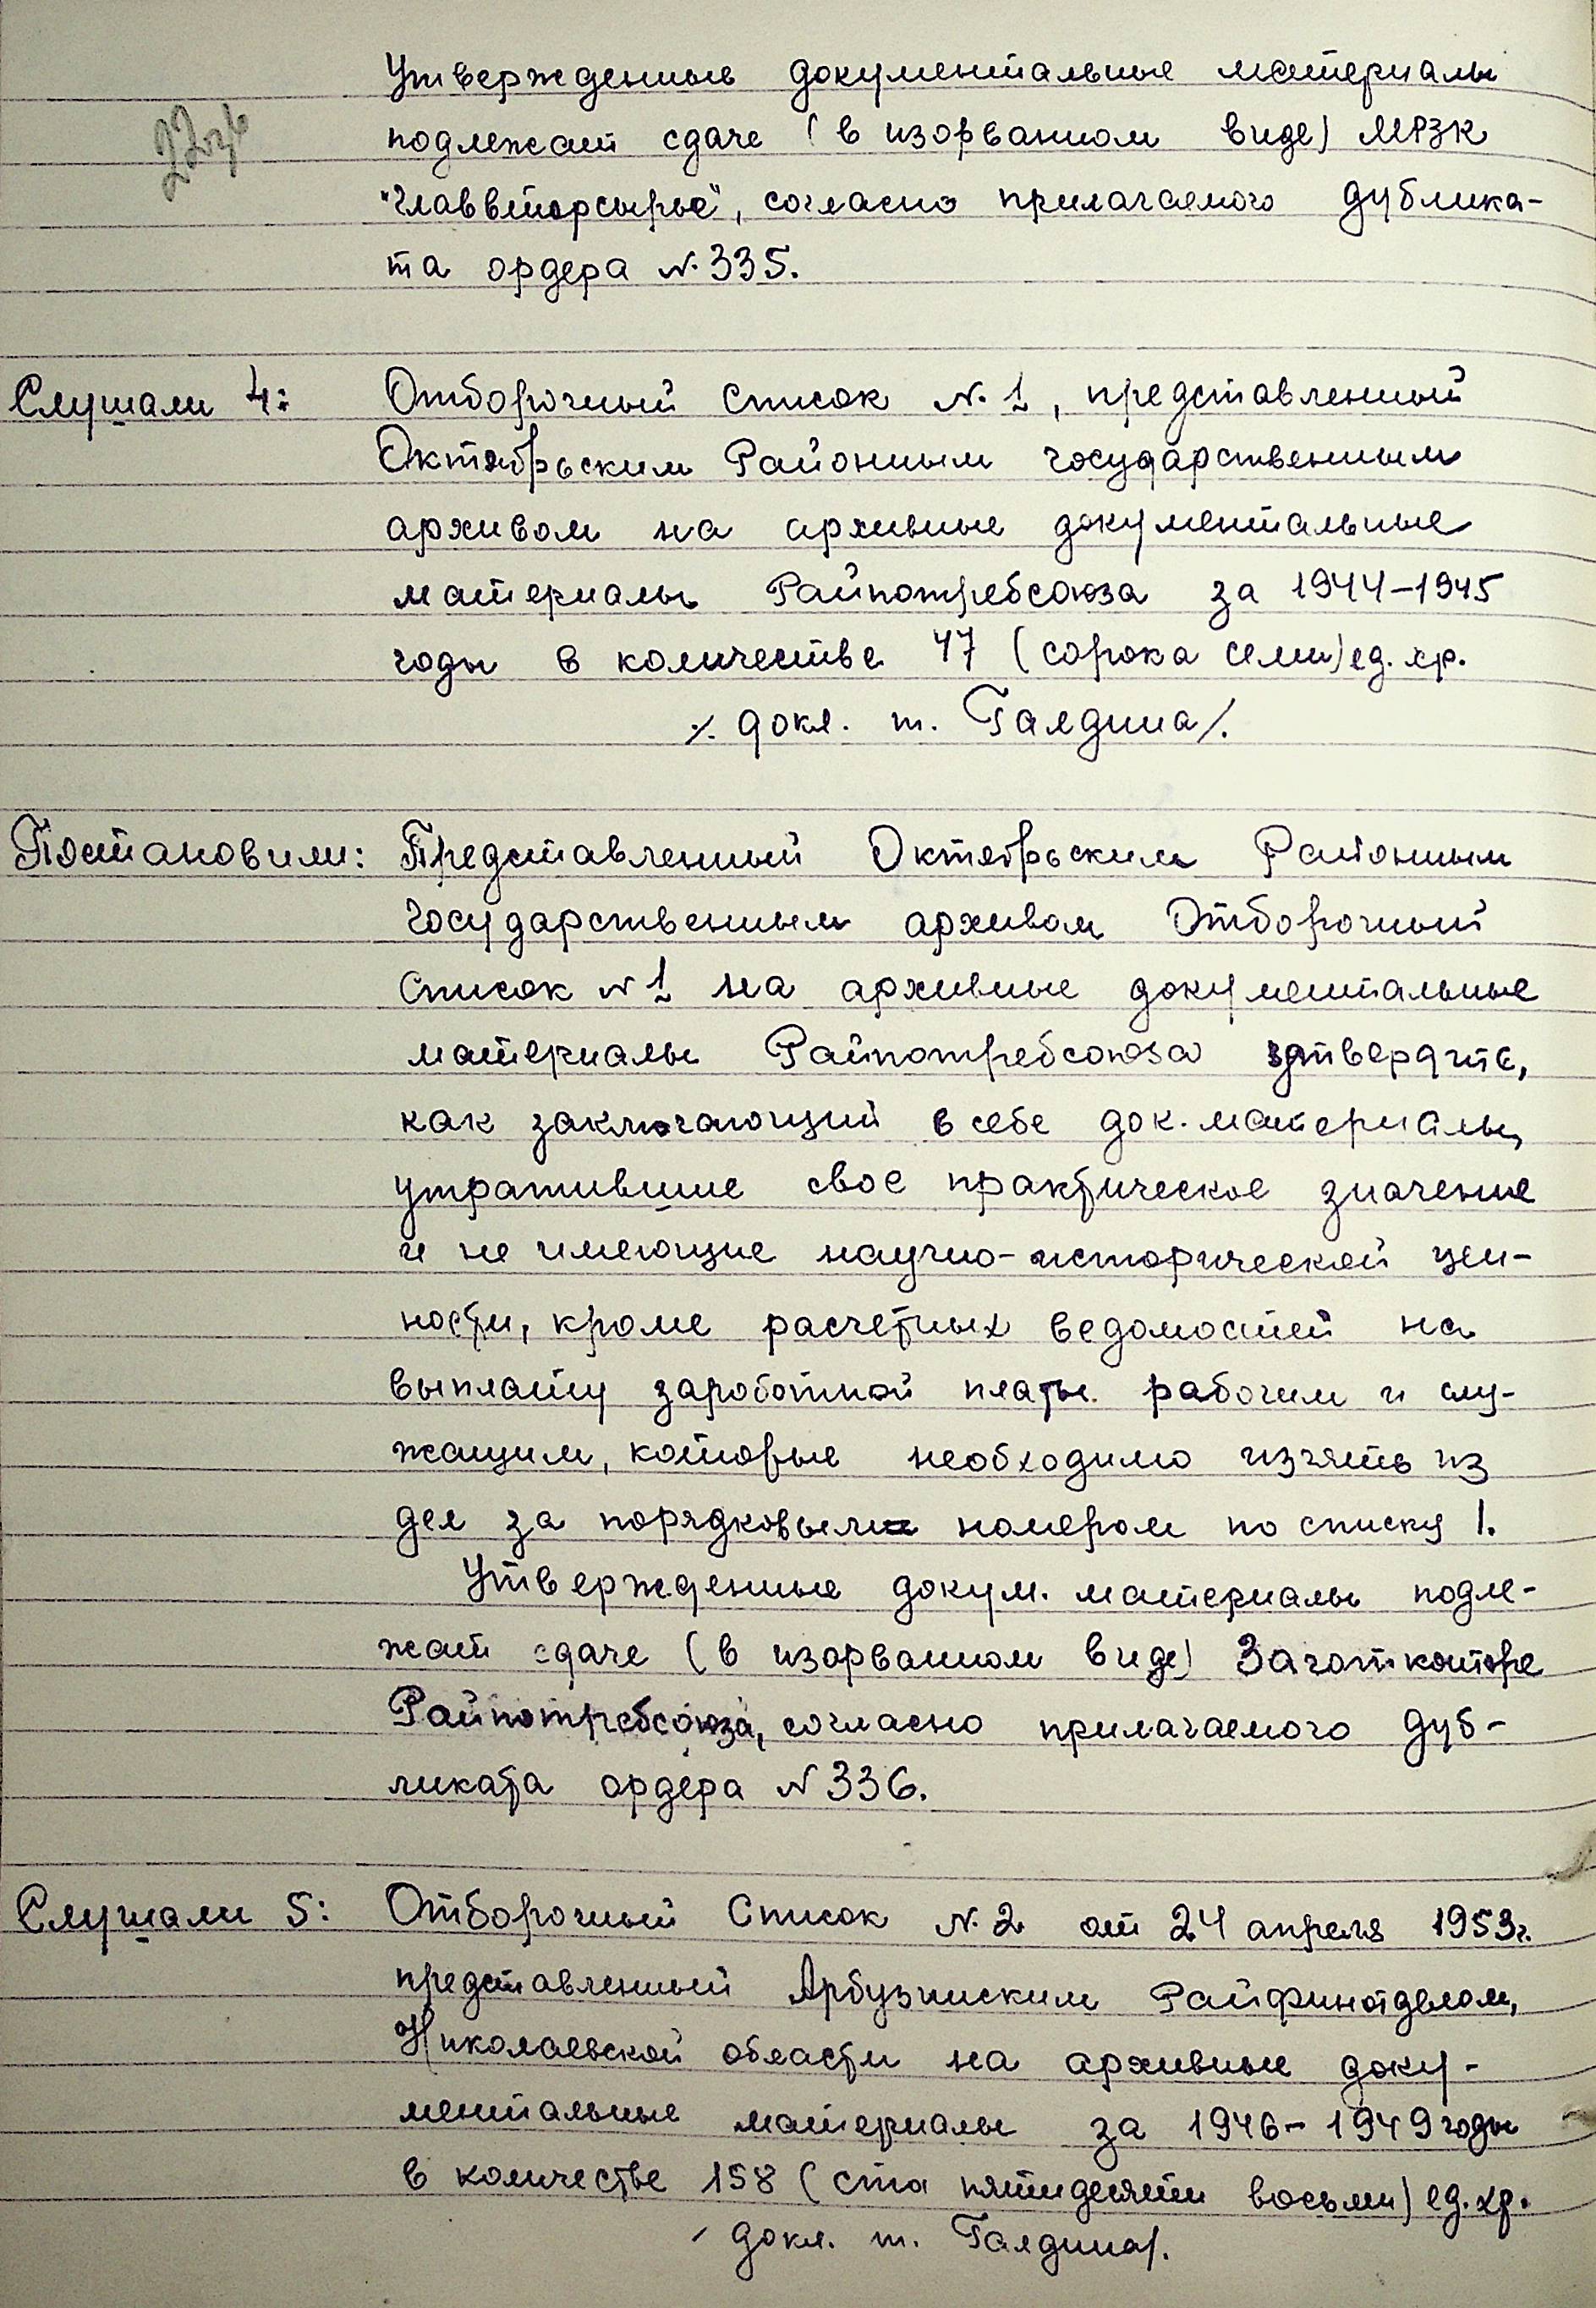 Утвержденные документальные материалы
подлежат сдаче (в изорванном виде) МРЗК
"Главвторсырье", согласно прилагаемого дублика-
та ордера №335.
Слушали 4: Отборочный список №1, представленный
Октябрьским Районным государственным
архивом на архивные документальные
материалы Райпотребсоюза за 1944-1945
годы в количестве 47 (сорока семи) ед. хр.
/. докл. т. Галдина/.
Постановили: Представленный Октябрьским Районным
государственным архивом Отборочный
список №1 на архивные документальные
материалы Райпотребсоюза утвердить,
как заключающий в себе док. материалы,
утратившие свое практическое значение
и не имеющие научно-исторической цен-
ности, кроме расчетных ведомостей на
выплату заработной платы рабочим и слу-
жащим, которые необходимо изъять из
дел за порядковым номером по списку 1.
Утвержденные докум. материалы подле-
жат сдаче (в изорванном виде) Заготконторе
Райпотребсоюза, согласно прилагаемого дуб-
ликата ордера №336.
Слушали 5: Отборочный Список №2 от 24 апреля 1953г.
представленный Арбузинским Райфинотделом,
Николаевской области на архивные доку-
ментальные материалы за 1946-1949 годы
в количестве 158 (ста пятидесяти восьми) ед. хр.
/ докл. т. Галдина/.